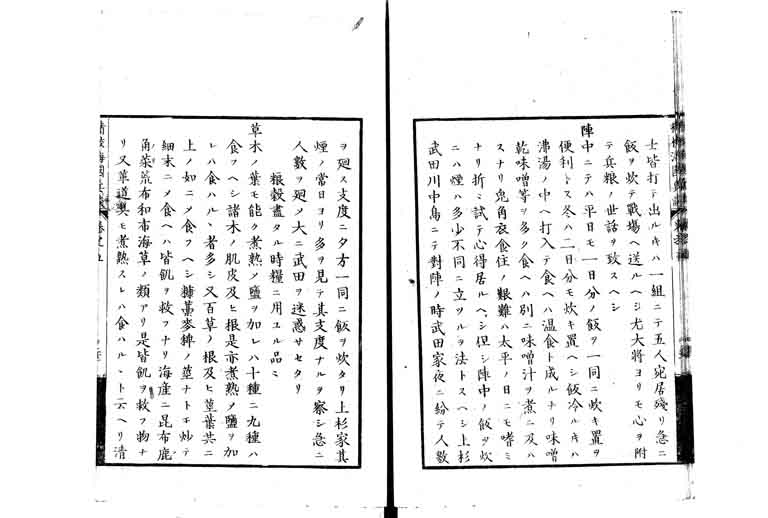 士皆打テ出ルキハ一組ニテ五人宛居殘リ急ニ
飯ヲ炊テ戰場ヘ送ルヘシ尤大將ヨリモ心ヲ附
テ兵粮ノ世話ヲ致スヘシ
陣中ニテハ平日モ一日分ノ飯ヲ一同ニ炊キ置ヲ
便利トス冬ハ二日分モ炊キ置ヘシ飯冷ルキハ
沸湯ノ中ヘ打入テ食ヘハ温食ト成ルナリ味噌
乾味噌等ヲ多ク食ヘハ別ニ味噌汁ヲ煮ニ及ハ
スナリ兎角衣食住ノ艱難ハ太平ノ日ニモ嗜ミ
ナリ折ニ試テ心得居ルヘシ但シ陣中ノ飯ヲ炊
ニハ煙ハ多少不同ニ立ツルヲ法トスヘシ上杉
武田川中島ニテ對陣ノ時武田家夜ニ紛テ人數
ヲ廻ス支度ニ夕方一同ニ飯ヲ炊タリ上杉家其
煙ノ常日ヨリ多ヲ見テ其支度ナルヲ察シ急ニ
人數ヲ廻メ大ニ武田ヲ迷惑サセタリ
粮穀盡タル時糧ニ用ユル品ミ
草木ノ葉モ能ク煮熟メ鹽ヲ加レハ十種ニ九種ハ
食フヘシ諸木ノ肌皮及ヒ根是亦煮熟メ鹽ヲ加
レハ食ハルヽ者多シ又百草ノ根及ヒ莖葉共ニ
上ノ如ニメ食フヘシ糠藁麥稗ノ莖ナトモ炒テ
細末ニメ食ヘハ皆飢ヲ救フナリ海産ニ昆布鹿
角菜荒布和布海草ノ類アリ是皆飢ヲ救フ物ナ
リ又革道具モ煮熟スレハ食ハルヽト云ヘリ清